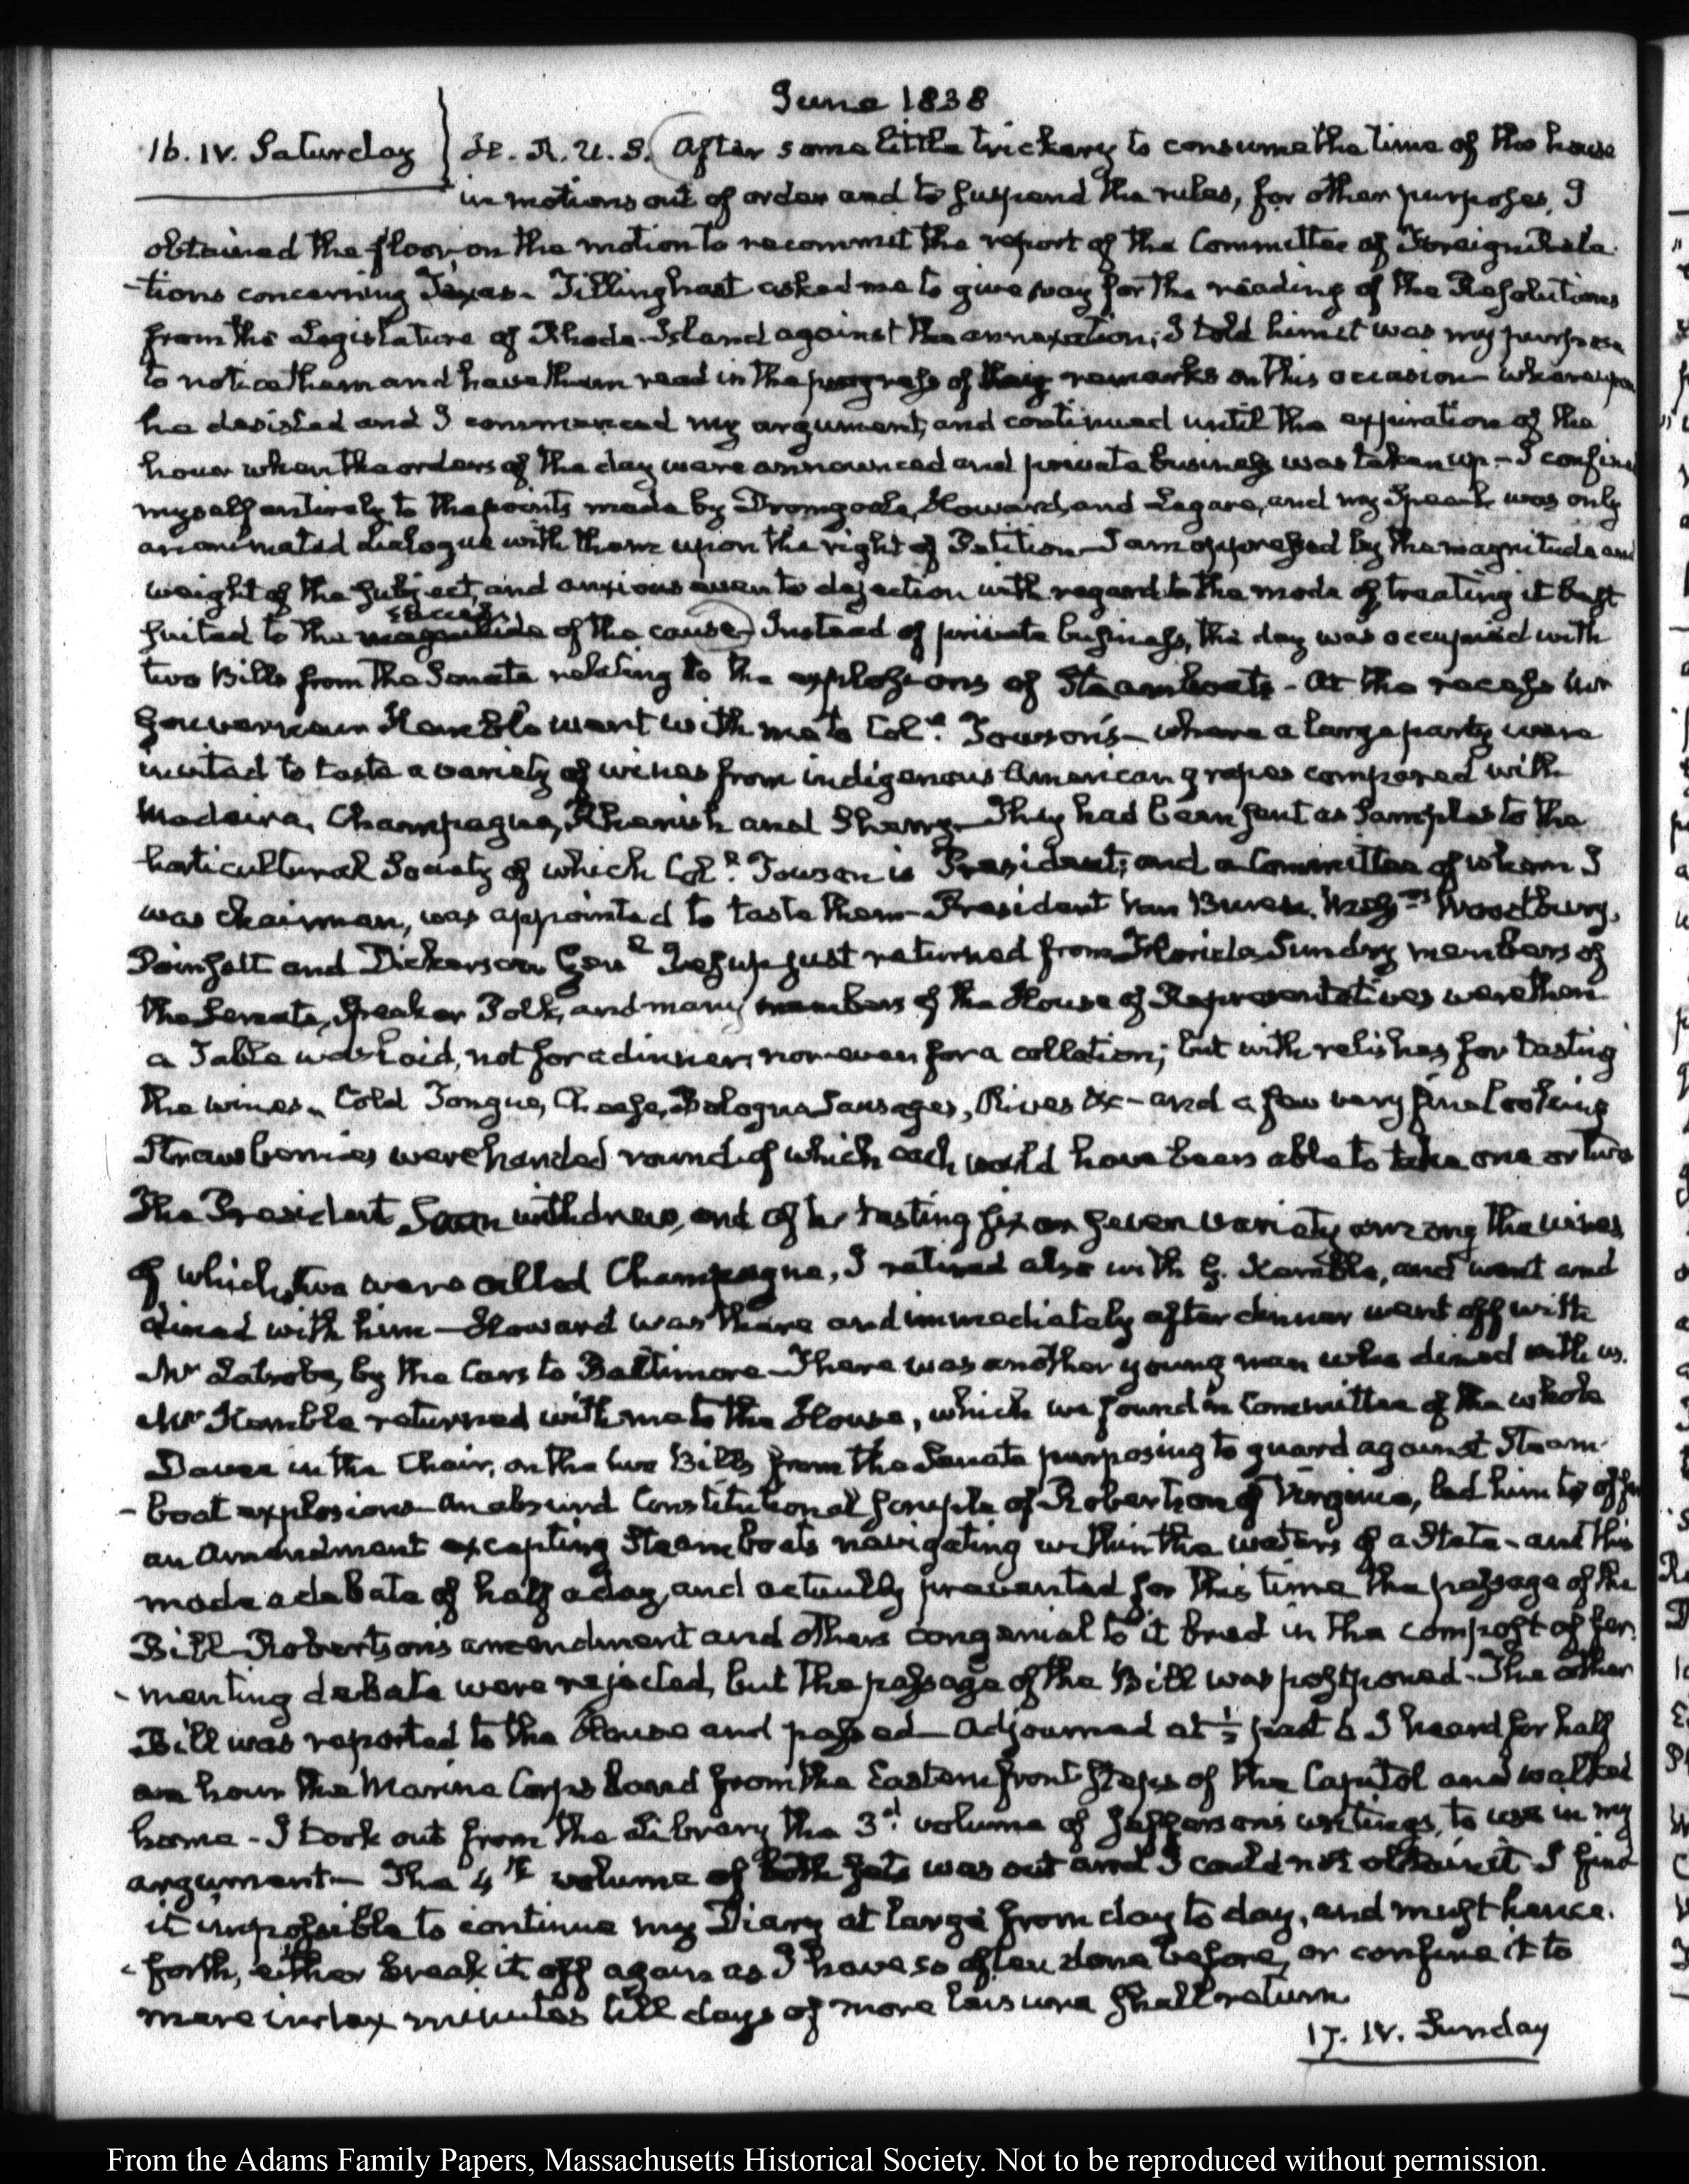 June 1838
16. IV. Saturday H. R. U. S. After some little trickery to consume the time of the house
in motions out of order and to suspend the rules, for other purposes, I
obtained the floor, on the motion to recommit the report of the Committee of Foreign Rela-
-tions concerning Texas. Tillinghast asked me to give way for the reading of the Resolutions
from the Legislature of Rhode-Island against the annexation; I told him it was my purpose
to notice them and have them read in the progress of my remarks on this occasion whereupon
he desisted and I commenced my argument, and continued until the expiration of the
hour when the orders of the day were announced and private business was taken up. I confined
myself entirely to the points made by Dromgoole, Howard, and Legare, and my Speech was only
an animated dialogue with them upon the right of Petition. I am oppressed by the magnitude and
weight of the subject, and anxious even to dejection with regard to the mode of treating it best
suited to the success of the cause. Instead of private business, the day was occupied with
two Bills from the Senate relating to the explosions of Steamboats. At the recess Mr
Gouverneur Kemble went with me to Coll. Towson's where a large party were
invited to taste a variety of wines from indigenous American grapes compared with
Madeira, Champagne, Rhenish and Sherry. They had been sent as samples to the
horticultural Society of which Coll. Towson is President; and a Committee of whom I
was chairman, was appointed to taste them. President Van Buren, Messrs Woodbury,
Poinsett and Dickerson Genl Jesup just returned from Florida, Sundry members of
the Senate, Speaker Polk, and many members of the House of Representatives were then
a Table was laid, not for a dinner, nor even for a collation; but with relishes for tasting
the wines. Cold Tongue, Cheese, Bologna Sausages, Olives &c and a few very fine looking
Strawberries were handed round of which each would have been able to take one or two
The President soon withdrew, and after tasting six or seven variety among the wines
of which two were called Champagne, I retired also with G. Kemble, and went and
dined with him. Howard was there and immediately after dinner went off with
Mr Latrobe, by the Cars to Baltimore. There was another young man who dined with us.
Mr Kemble returned with me to the House, which we found in Committee of the whole
Davee in the Chair, on the two Bills from the Senate purposing to guard against Steam-
-boat explosions. An absurd Constitutional scruple of Robertson of Virginia, led him to offer
an Amendment excepting Steamboats navigating within the waters of a State. and this
made a debate of half a day, and actually prevented for this time the passage of the
Bill. Robertson's amendment and others congenial to it bred in the compost of fer-
-menting debate were rejected, but the passage of the Bill was postponed. The other
Bill was reported to the House and passed. Adjourned at ½ past 6 I heard for half
an hour the Marine Corps band from the Eastern front steps of the Capitol and walked
home. I took out from the Library the 3d. volume of Jefferson's writings, to use in my
argument. The 4th volume of both sets was out and I could not obtain it. I find
it impossible to continue my Diary at large from day to day, and must hence-
-forth, either break it off again as I have so often done before, or confine it to
mere index minutes till days of more leisure shall return
17. IV. Sunday
From the Adams Family Papers, Massachusetts Historical Society. Not to be reproduced without permission.